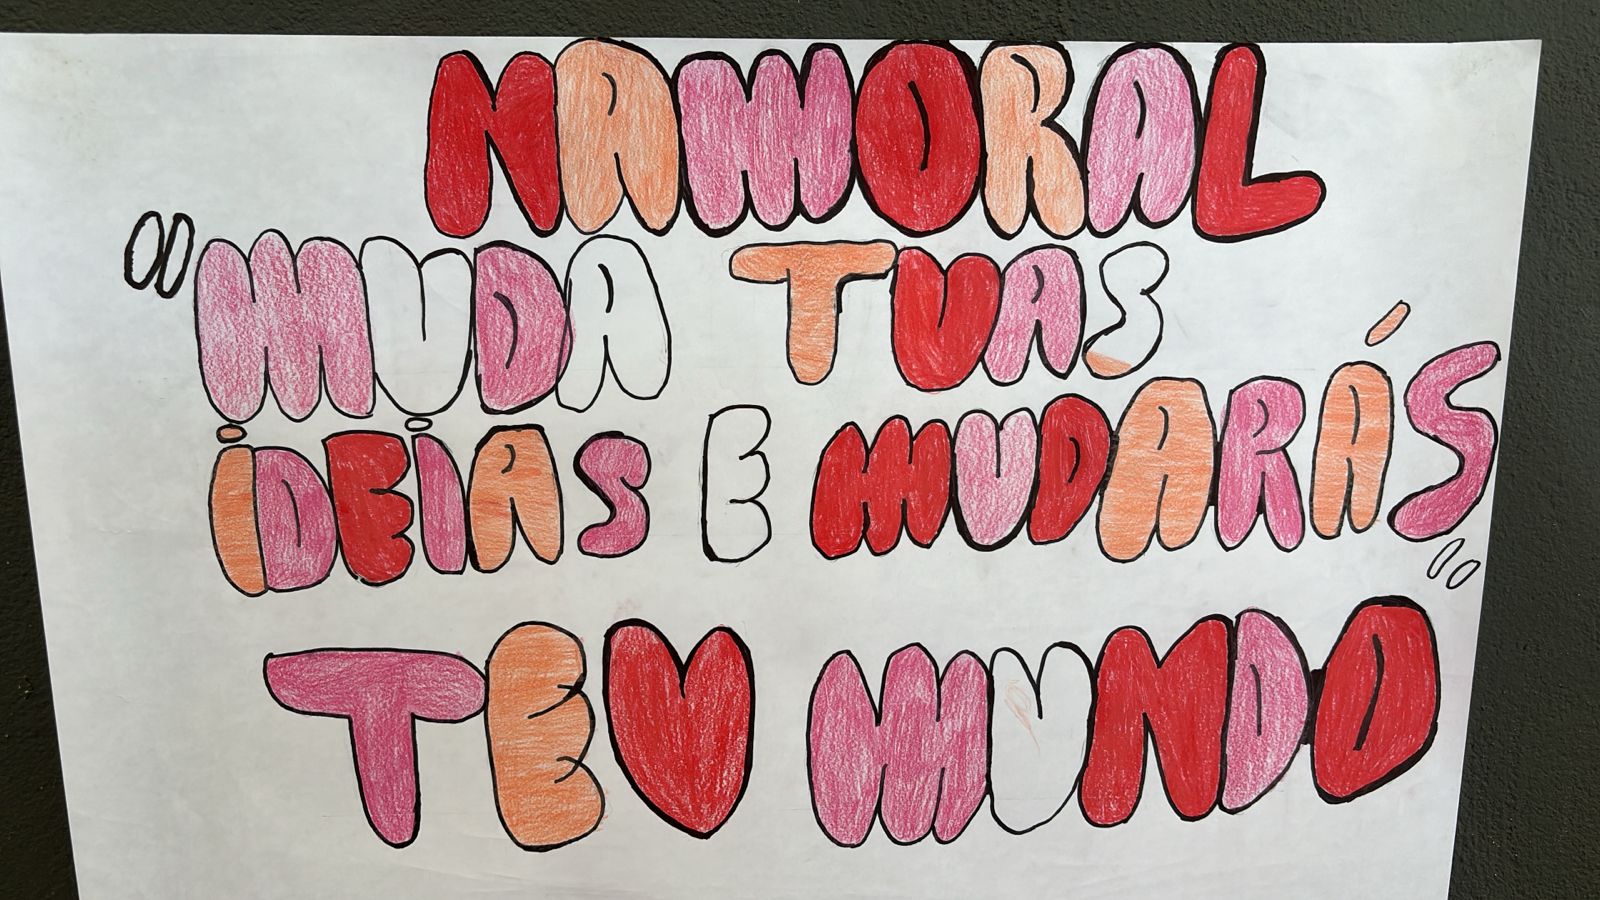 NAMORAL
"MUDA TUAS
iDEiAS E MUDARÁS"
TEU MUNDO